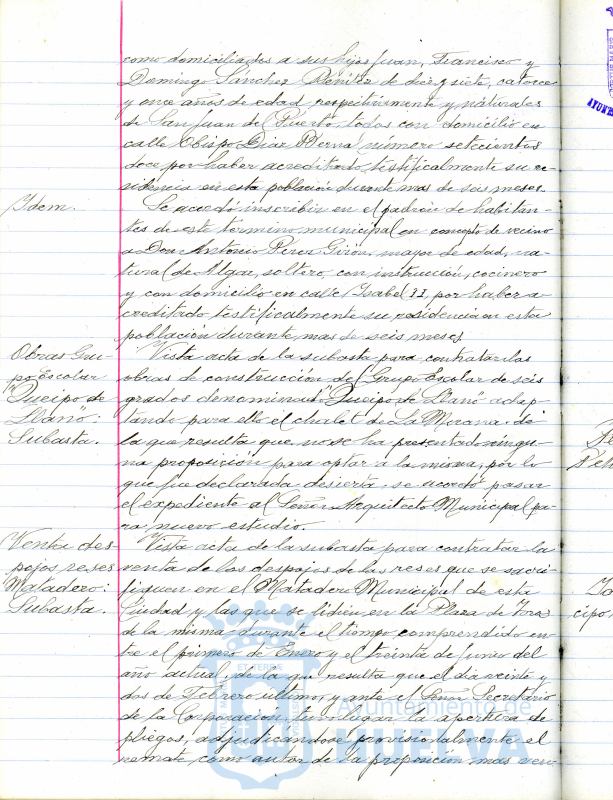 como domiciliados a sus hijos Juan, Francisco y
Domingo Sánchez Benítez de diez y siete, catorce
y once años de edad respectivamente y naturales
de San Juan del Puerto, todos con domicilio en
calle Obispo Díaz Bernal número setecientos
doce por haber acreditado testificalmente su re-
sidencia en esta población durante mas de seis meses.
Idem.
Se acordó inscribir en el padrón de habitan-
tes de este termino municipal en concepto de vecino
a Don Antonio Pérez Girón, mayor de edad, na-
tural de Algar, soltero, con instrucción, cocinero
y con domicilio en calle Isabel II por haber a-
creditado testificalmente su residencia en esta
población durante mas de seis meses
Obras Gru-
po Escolar
"Queipo de
Llano":
Subasta.
Vista acta de la subasta para contratar las
obras de construcción del Grupo Escolar de seis
grados denominado "Queipo de Llano" adap-
tando para ello el chalet de La Morana, de
la que resulta que no se ha presentado ningu-
na proposición para optar a la misma, por lo
que fue declarada desierta, se acordó pasar
el expediente al Señor Arquitecto Municipal pa-
ra nuevo estudio.
Venta des-
pojos reses
Matadero:
Subasta.
Vista acta de la subasta para contratar la
venta de los despojos de las reses que se sacri-
fiquen en el Matadero Municipal de esta
Ciudad y las que se lidien en la Plaza de Toros
de la misma durante el tiempo comprendido en-
tre el primero de Enero y el treinta de Junio del
año actual, de la que resulta que el día veinte y
dos de Febrero último y ante el Señor Secretario
de la Corporación, tuvo lugar la apertura de
pliegos, adjudicándose provisionalmente el
remate, como autor de la proposición mas ven-
Ayuntamiento de
HUELVA